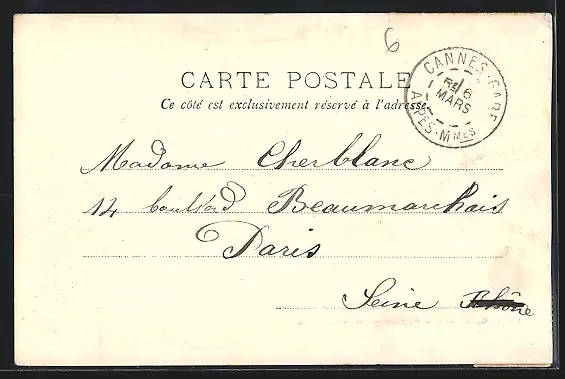 6
CARTE POSTALE
Ce côté est exclusivement réservé à l'adresse.
CANNES-GARE
6
MARS
ALPES-MMES
Madame Cherblanc
14 boulard Beaumarchais
Paris
Seine Rhône